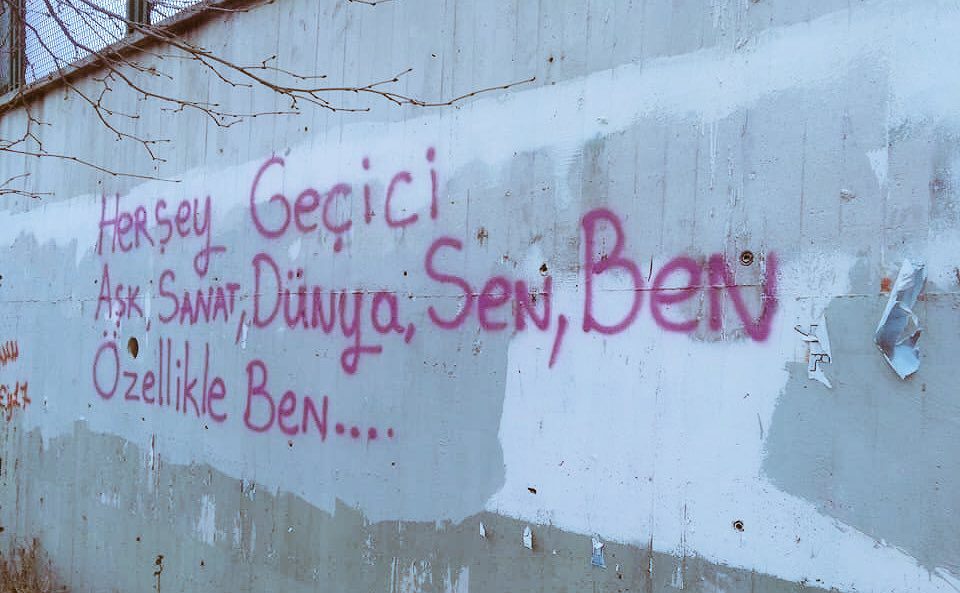 Herşey Geçici
Aşk, Sanat, Dünya, Sen, Ben
Özellikle Ben....